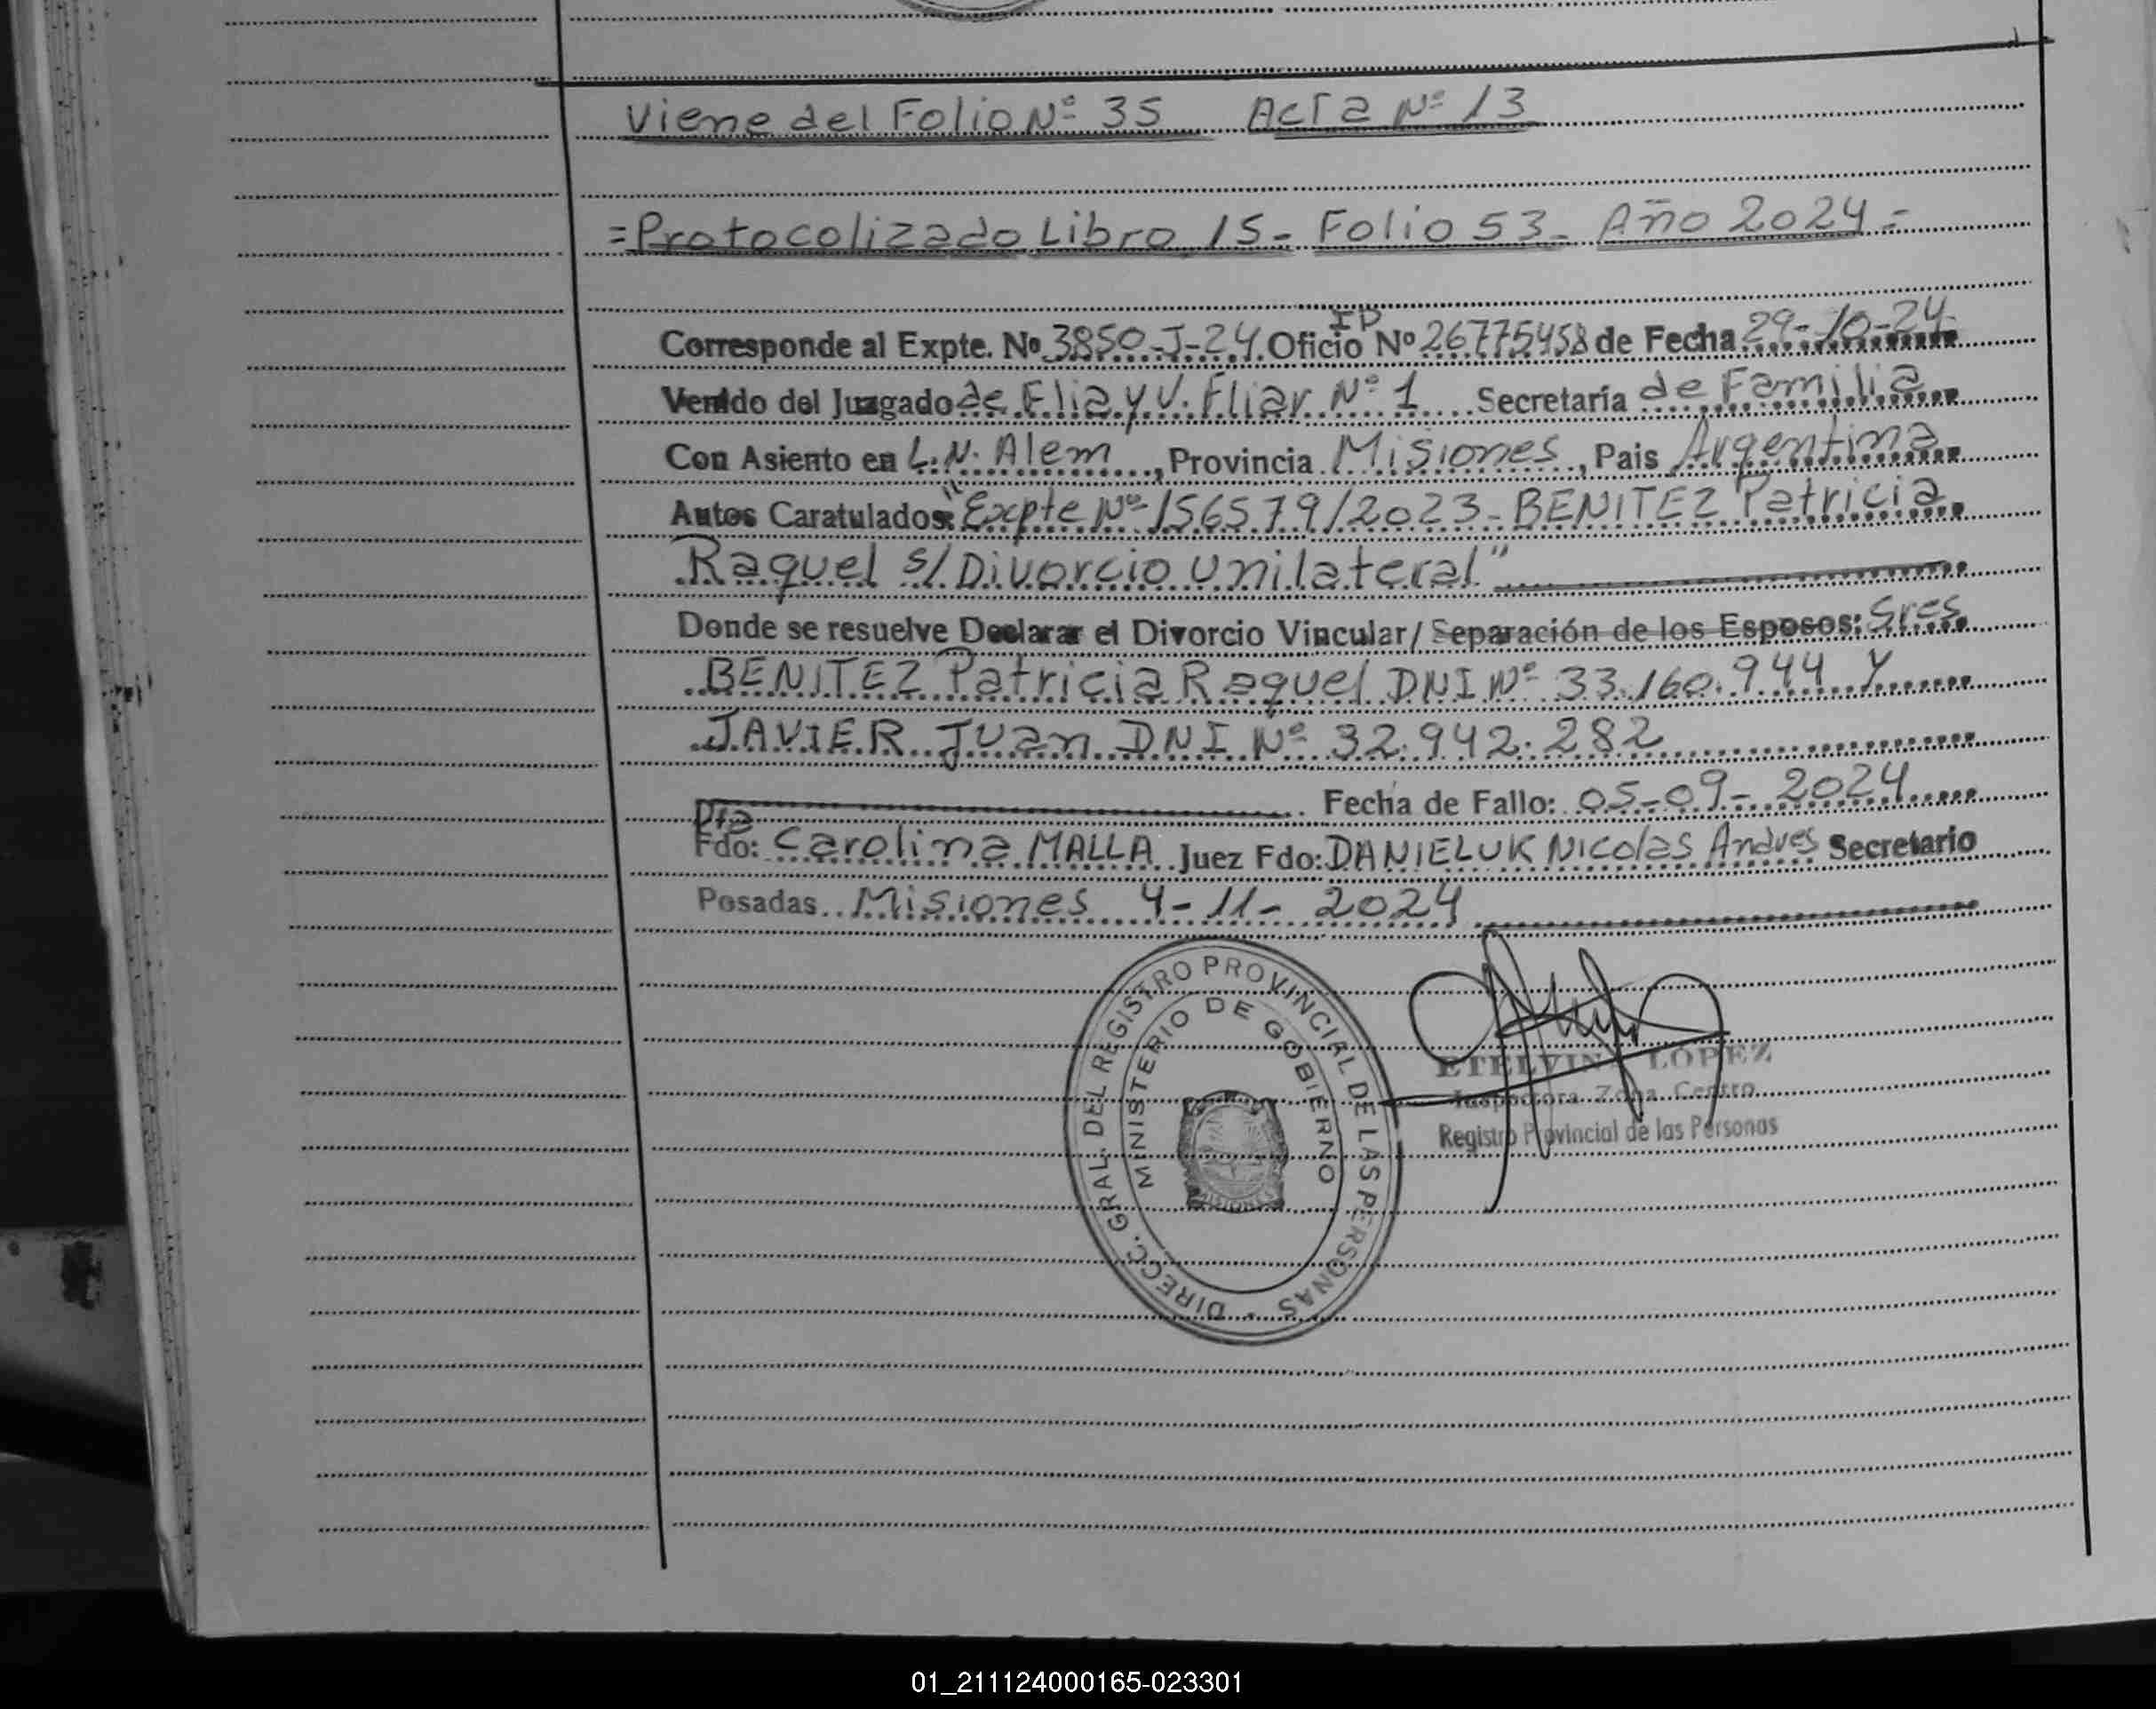 Viene del Folio Nº 35 Acta Nº 13
=Protocolizado Libro 15- Folio 53- Año 2024=
Corresponde al Expte. Nº 3850-J-24 Oficio ID Nº 26775458 de Fecha 29-10-24
Venido del Juzgado de Flia y V. Fliar Nº 1 Secretaría de Familia
Con Asiento en L.N. Alem, Provincia Misiones, Pais Argentina
Autos Caratulados: "Expte Nº 156579/2023- BENITEZ Patricia
Raquel s/Divorcio Unilateral"
Donde se resuelve Declarar el Divorcio Vincular/Separación de los Esposos: Sres
BENITEZ Patricia Raquel DNI Nº 33.160.944 y
JAVIER Juan DNI Nº 32.942.282
Fecha de Fallo: 05-09-2024
Fdo: Dra Carolina MALLA Juez Fdo: DANIELUK Nicolas Andres Secretario
Posadas Misiones 4-11-2024
DIRECC. GRAL. DEL REGISTRO PROVINCIAL DE LAS PERSONAS
MINISTERIO DE GOBIERNO
MISIONES
ETELVINA LOPEZ
Inspectora Zona Centro
Registro Provincial de las Personas
01_211124000165-023301